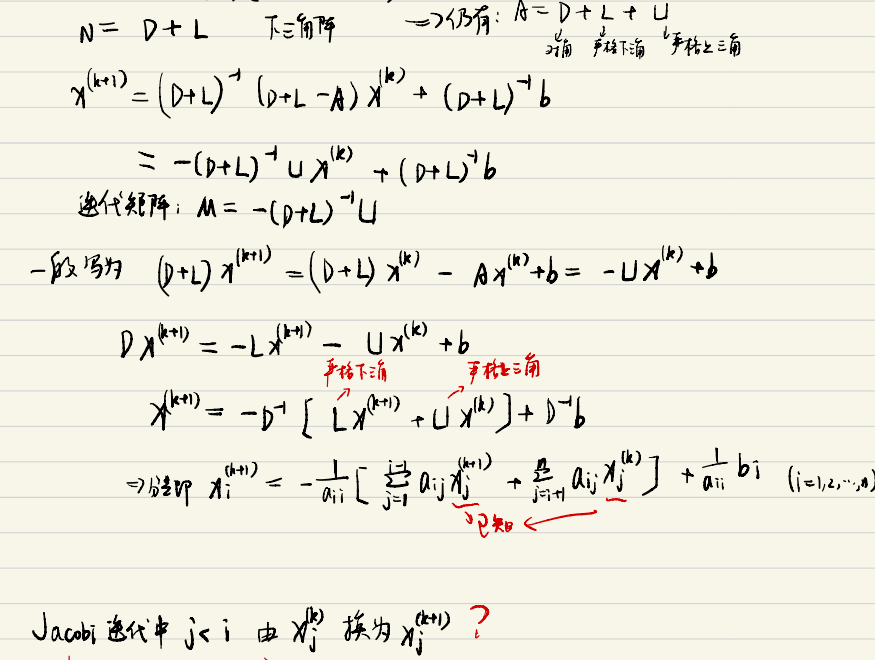 N = D + L 下三角阵 ⇒仍有: A = D + L + U
对角 严格下角 严格上三角
x^(k+1) = (D+L)^-1 (D+L-A) x^(k) + (D+L)^-1 b
= -(D+L)^-1 U x^(k) + (D+L)^-1 b
迭代矩阵: M = -(D+L)^-1 U
一般写为 (D+L) x^(k+1) = (D+L) x^(k) - A x^(k) + b = -U x^(k) + b
D x^(k+1) = -L x^(k+1) - U x^(k) + b
严格下三角 严格上三角
x^(k+1) = -D^-1 [ L x^(k+1) + U x^(k) ] + D^-1 b
⇒分量即 x_i^(k+1) = -1/a_ii [ ∑_{j=1}^{i-1} a_ij x_j^(k+1) + ∑_{j=i+1}^{n} a_ij x_j^(k) ] + 1/a_ii b_i (i=1,2,…,n)
已知
Jacobi 迭代中 j < i 由 x_j^(k) 换为 x_j^(k+1) ?